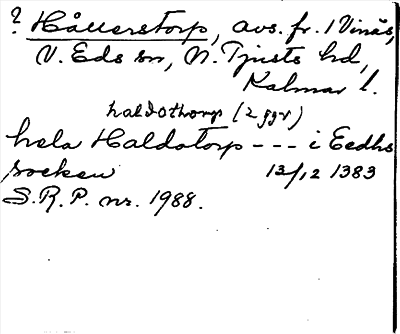 ? Hållerstorp, avs. fr. 1 Vinäs,
V. Eds sn, N. Tjusts hd,
Kalmar l.
haldothorp (2 ggr)
hela Haldatorp --- i Eedhs
socken 13/12 1383
S.R.P. nr. 1988.